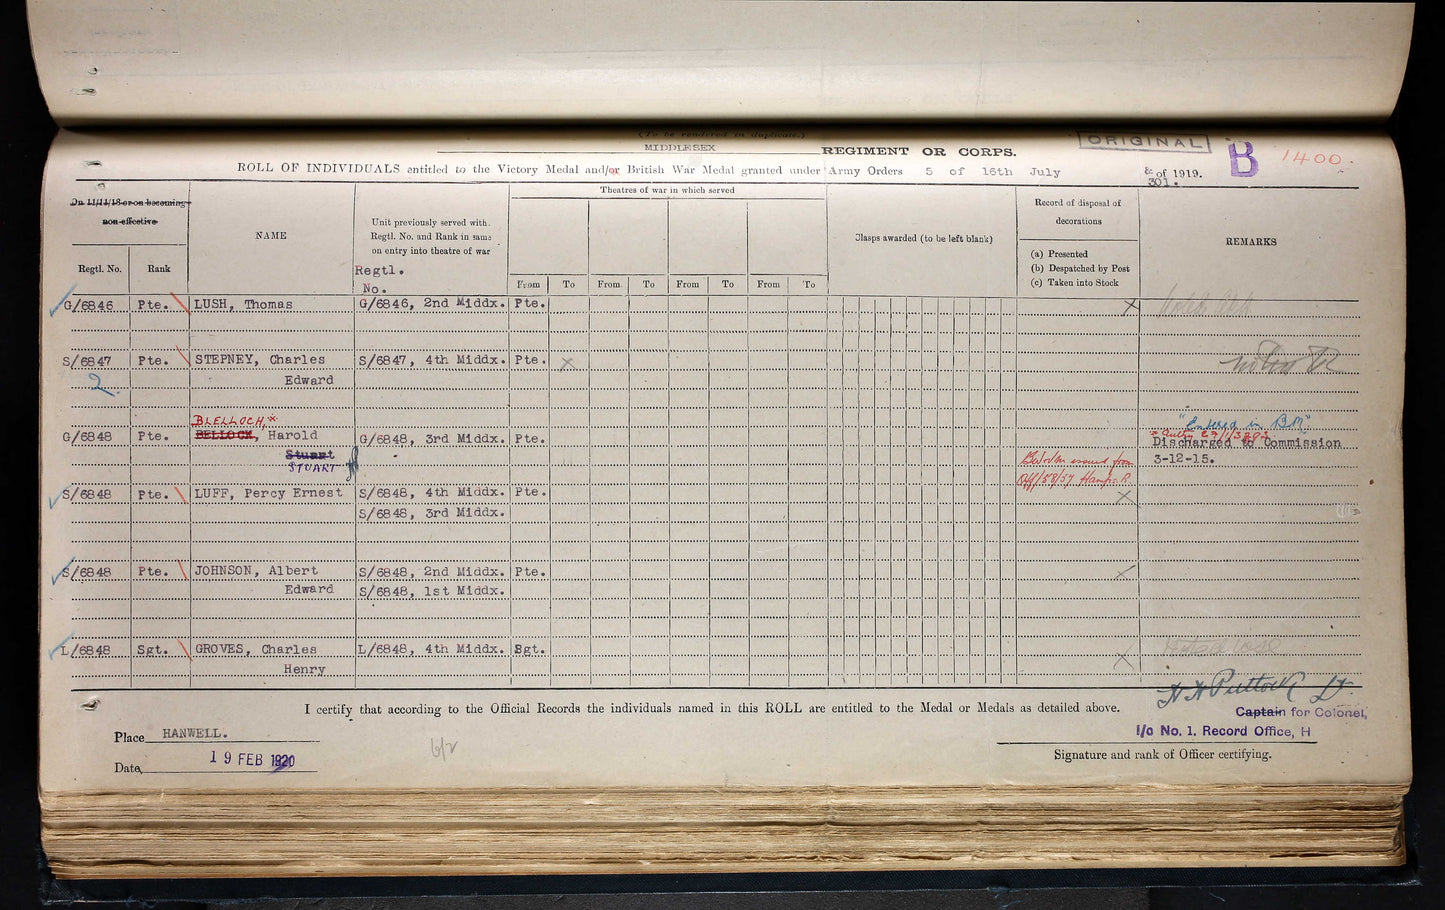 (To be rendered in duplicate.)
MIDDLESEX REGIMENT OR CORPS.
ORIGINAL
B
1400.
ROLL OF INDIVIDUALS entitled to the Victory Medal and/or British War Medal granted under Army Orders 5 of 16th July & of 1919.
301.
On 11/11/18 or on becoming
non-effective
Regtl. No.
Rank
NAME
Unit previously served with.
Regtl. No. and Rank in same
on entry into theatre of war
Regtl.
No.
Theatres of war in which served
From To From To From To From To
Clasps awarded (to be left blank)
Record of disposal of
decorations
(a) Presented
(b) Despatched by Post
(c) Taken into Stock
REMARKS
G/6846 Pte. LUSH, Thomas G/6846, 2nd Middx. Pte. X
S/6847 Pte. STEPNEY, Charles S/6847, 4th Middx. Pte. X
2. Edward
BLELLOCH,* "Entered in BR"
G/6848 Pte. BELLOCK, Harold G/6848, 3rd Middx. Pte. Discharged to Commission
Stuart 3-12-15.
STUART
BWM issued from
Off/58/57 Hamps. R
S/6848 Pte. LUFF, Percy Ernest S/6848, 4th Middx. Pte. X
S/6848, 3rd Middx.
S/6848 Pte. JOHNSON, Albert S/6848, 2nd Middx. Pte. X
Edward S/6848, 1st Middx.
L/6848 Sgt. GROVES, Charles L/6848, 4th Middx. Sgt. X
Henry
I certify that according to the Official Records the individuals named in this ROLL are entitled to the Medal or Medals as detailed above.
Captain for Colonel,
I/c No. 1. Record Office, H
Signature and rank of Officer certifying.
Place HANWELL.
Date, 19 FEB 1920